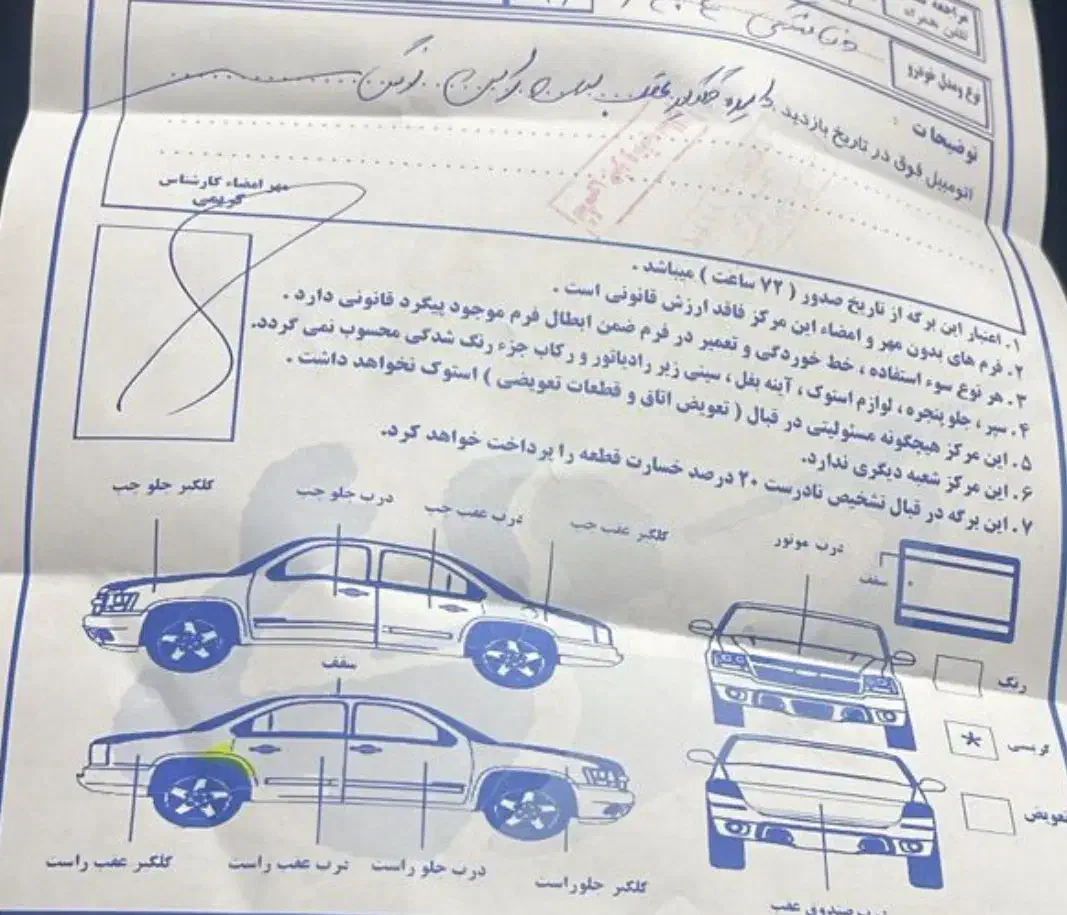 مراجعه
تلفن همراه
نوع ومدل خودرو
توضیحات :
اتومبیل فوق در تاریخ بازدید دایره گلگیر عقب
مهر امضاء کارشناس
کریمی
۱. اعتبار این برگه از تاریخ صدور ( ۷۲ ساعت ) میباشد .
۲. فرم های بدون مهر و امضاء این مرکز فاقد ارزش قانونی است .
۳. هر نوع سوء استفاده ، خط خوردگی و تعمیر در فرم ضمن ابطال فرم موجود پیگرد قانونی دارد .
۴. سپر ، جلو پنجره ، لوازم استوک ، آینه بغل ، سینی زیر رادیاتور و رکاب جزء رنگ شدگی محسوب نمی گردد.
۵. این مرکز هیچگونه مسئولیتی در قبال ( تعویض اتاق و قطعات تعویضی ) استوک نخواهد داشت .
۶. این مرکز شعبه دیگری ندارد.
۷. این برگه در قبال تشخیص نادرست ۲۰ درصد خسارت قطعه را پرداخت خواهد کرد.
گلگیر جلو چپ
درب جلو چپ
درب عقب چپ
گلگیر عقب چپ
درب موتور
سقف
سقف
رنگ
*
تعویض
گلگیر عقب راست
درب عقب راست
درب جلو راست
گلگیر جلو راست
درب صندوق عقب